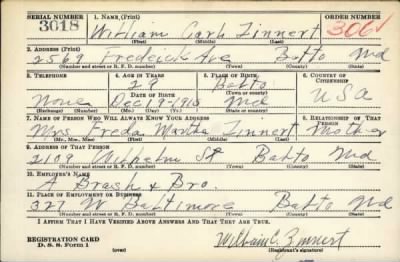 SERIAL NUMBER 1. NAME (Print) ORDER NUMBER
3018 William Carl Zinnert 3064
(First) (Middle) (Last)
2. ADDRESS (Print)
2569 Frederick Ave Balto Md
(Number and street or R. F. D. number) (Town) (County) (State)
3. TELEPHONE 4. AGE IN YEARS 5. PLACE OF BIRTH 6. COUNTRY OF CITIZENSHIP
Balto
DATE OF BIRTH (Town or county)
None Dec 19 - 1915 Md USA
(Exchange) (Number) (Mo.) (Day) (Yr.) (State or country)
7. NAME OF PERSON WHO WILL ALWAYS KNOW YOUR ADDRESS 8. RELATIONSHIP OF THAT PERSON
Mrs. Freda Martha Zinnert Mother
(Mr., Mrs., Miss) (First) (Middle) (Last)
9. ADDRESS OF THAT PERSON
2109 Wilhelm St Balto Md
(Number and street or R. F. D. number) (Town) (County) (State)
10. EMPLOYER'S NAME
A Brash & Bro.
11. PLACE OF EMPLOYMENT OR BUSINESS
327 W Baltimore Balto Md
(Number and street or R. F. D. number) (Town) (County) (State)
I AFFIRM THAT I HAVE VERIFIED ABOVE ANSWERS AND THAT THEY ARE TRUE.
REGISTRATION CARD
D. S. S. Form 1 (over) William C. Zinnert
(Registrant's signature)